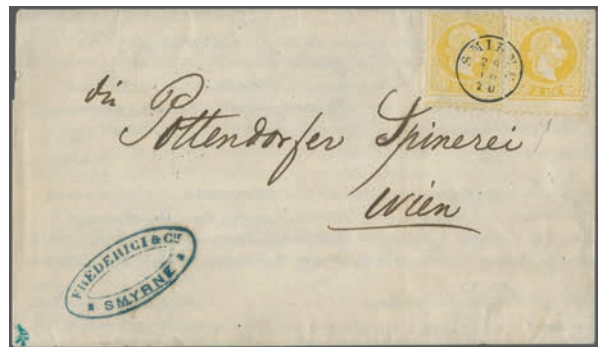 SMIRNE
die
Pottendorfer Spinerei
Wien
FREDERICI & CIE
SMYRNE